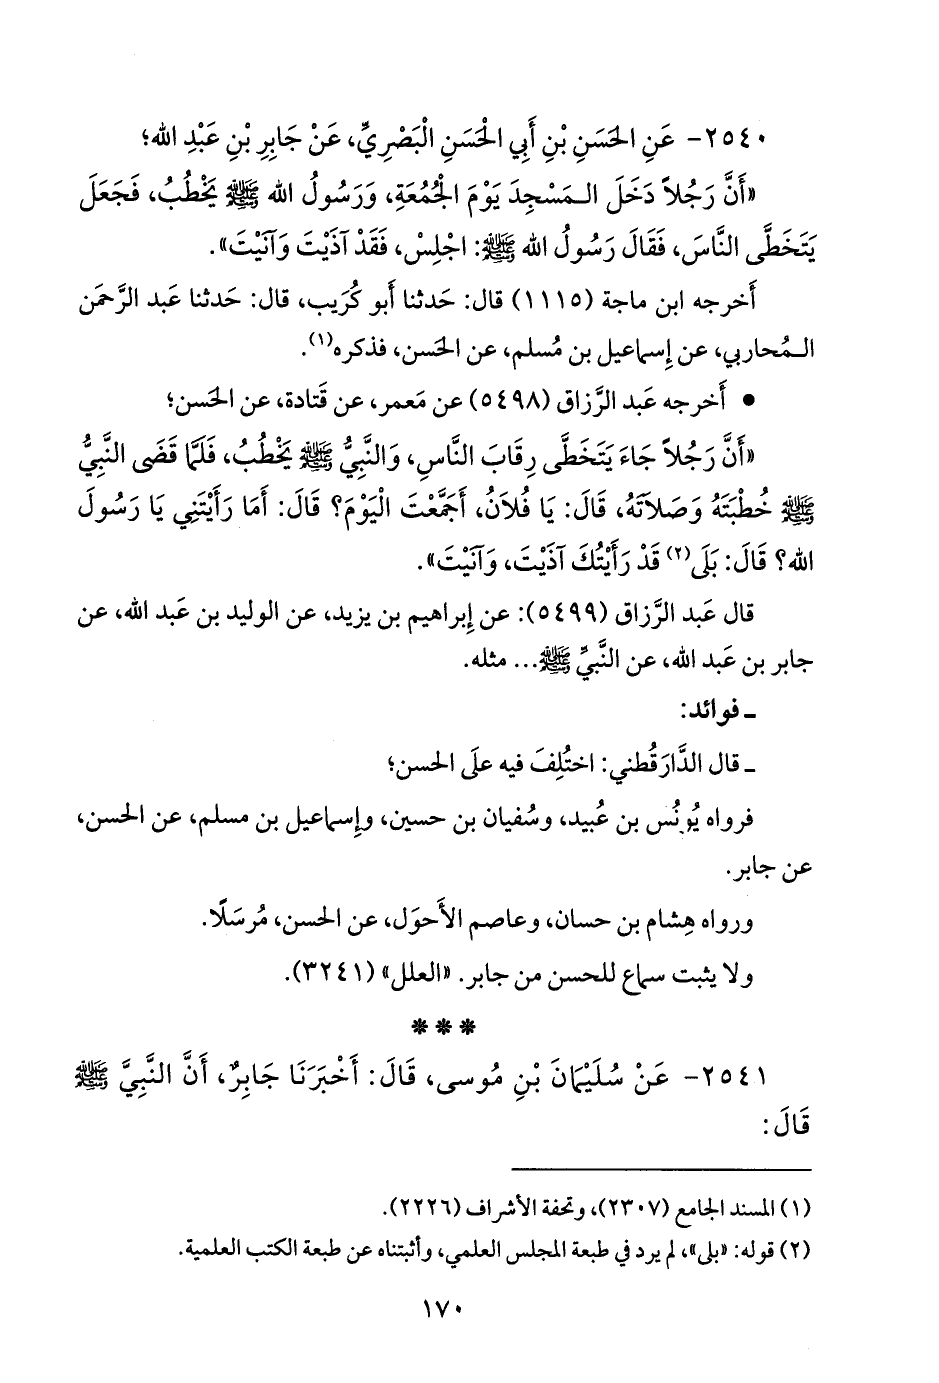 ٢٥٤٠- عَنِ الحَسَنِ بْنِ أَبِي الْحَسَنِ الْبَصْرِيِّ، عَنْ جَابِرِ بْنِ عَبْدِ الله؛
«أَنَّ رَجُلاً دَخَلَ الـمَسْجِدَ يَوْمَ الْجُمُعَةِ، وَرَسُولُ الله ﷺ يَخْطُبُ، فَجَعَلَ
يَتَخَطَّى النَّاسَ، فَقَالَ رَسُولُ الله ﷺ: اجْلِسْ، فَقَدْ آذَيْتَ وَآنَيْتَ».
أَخرجه ابن ماجة (١١١٥) قال: حَدثنا أَبو كُرَيب، قال: حَدثنا عَبد الرَّحمَن
الـمُحاربي، عن إِسماعيل بن مُسلم، عن الحَسن، فذكره(١).
• أَخرجه عَبد الرَّزاق (٥٤٩٨) عن مَعمر، عن قَتادة، عن الحَسن؛
«أَنَّ رَجُلاً جَاءَ يَتَخَطَّى رِقَابَ النَّاسِ، وَالنَّبِيُّ ﷺ يَخْطُبُ، فَلَمَّا قَضَى النَّبِيُّ
ﷺ خُطْبَتَهُ وَصَلاَتَهُ، قَالَ: يَا فُلاَنُ، أَجَمَّعْتَ الْيَوْمَ؟ قَالَ: أَمَا رَأَيْتَنِي يَا رَسُولَ
الله؟ قَالَ: بَلَى(٢) قَدْ رَأَيْتُكَ آذَيْتَ، وَآنَيْتَ».
قال عَبد الرَّزاق (٥٤٩٩): عن إِبراهيم بن يزيد، عن الوليد بن عَبد الله، عن
جابر بن عَبد الله، عن النَّبيِّ ﷺ... مثله.
ـ فوائد:
ـ قال الدَّارَقُطني: اختُلِفَ فيه علَى الحسن؛
فرواه يُونُس بن عُبيد، وسُفيان بن حسين، وإِسماعيل بن مسلم، عن الحسن،
عن جابر.
ورواه هِشام بن حسان، وعاصم الأَحوَل، عن الحسن، مُرسَلًا.
ولا يثبت سماع للحسن من جابر. «العلل» (٣٢٤١).
***
٢٥٤١- عَنْ سُلَيْمَانَ بْنِ مُوسى، قَالَ: أَخْبَرَنَا جَابِرٌ، أَنَّ النَّبِيَّ ﷺ
قَالَ:
(١) المسند الجامع (٢٣٠٧)، وتحفة الأشراف (٢٢٢٦).
(٢) قوله: «بلى»، لم يرد في طبعة المجلس العلمي، وأثبتناه عن طبعة الكتب العلمية.
١٧٠